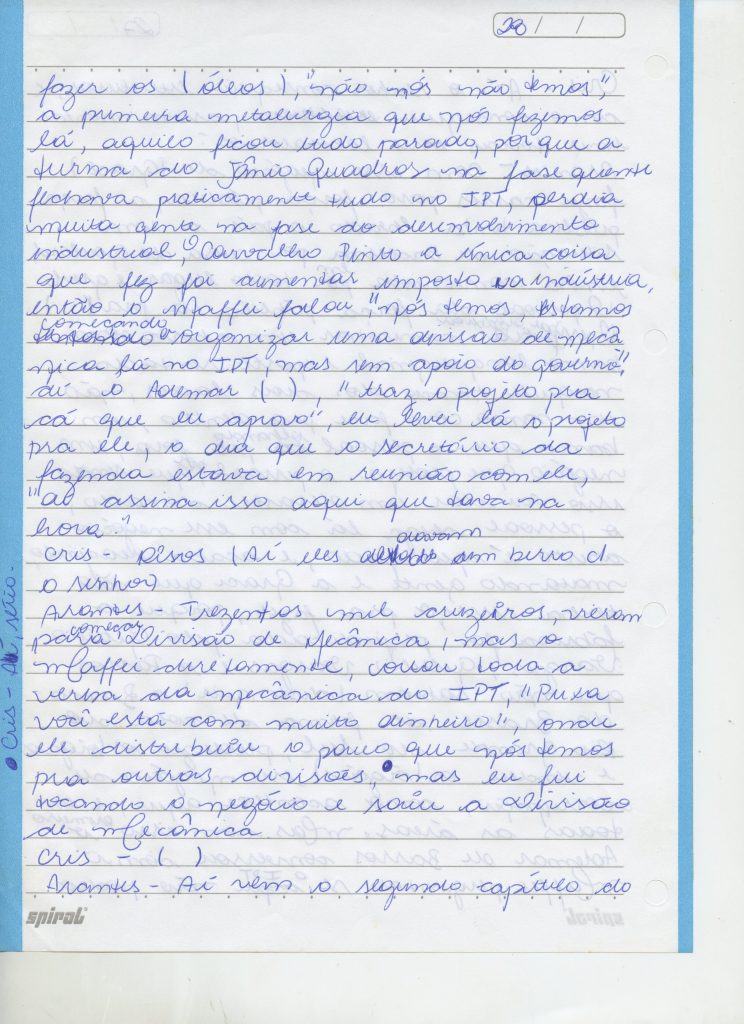 28 / /
fazer os (óleos), "não nós não temos",
a primeira metalurgia que nós fizemos
lá, aquilo ficou tudo parado, porque a
turma do Jânio Quadros na fase quente
fechava praticamente tudo no IPT, perdia
muita gente na fase do desenvolvimento
industrial, o Carvalho Pinto a única coisa
que fez foi aumentar imposto na indústria,
então o Maffei falou, "nós temos, estamos
começando
a organizar uma divisão de mecâ
nica lá no IPT, mas sem apoio do governo",
aí o Ademar ( ), "traz o projeto pra
cá que eu aprovo", eu levei lá o projeto
pra ele, o dia que o secretário da
fazenda estava em reunião com ele,
"ao assina isso aqui que tava na
hora."
Cris - Risos (Aí eles davam um berro d
o senhor)
Arantes - Trezentos mil cruzeiros, vieram
para começar Divisão de Mecânica, mas o
Maffei diretamente, cortou toda a
verba da mecânica do IPT, "Puxa
você está com muito dinheiro", onde
ele distribuiu o pouco que nós temos
pra outras divisões, mas eu fui
tocando o negócio e saiu a Divisão
de Mecânica
Cris - ( )
Arantes - Aí vem o segundo capítulo do
spiral
Cris - Ah, sério.